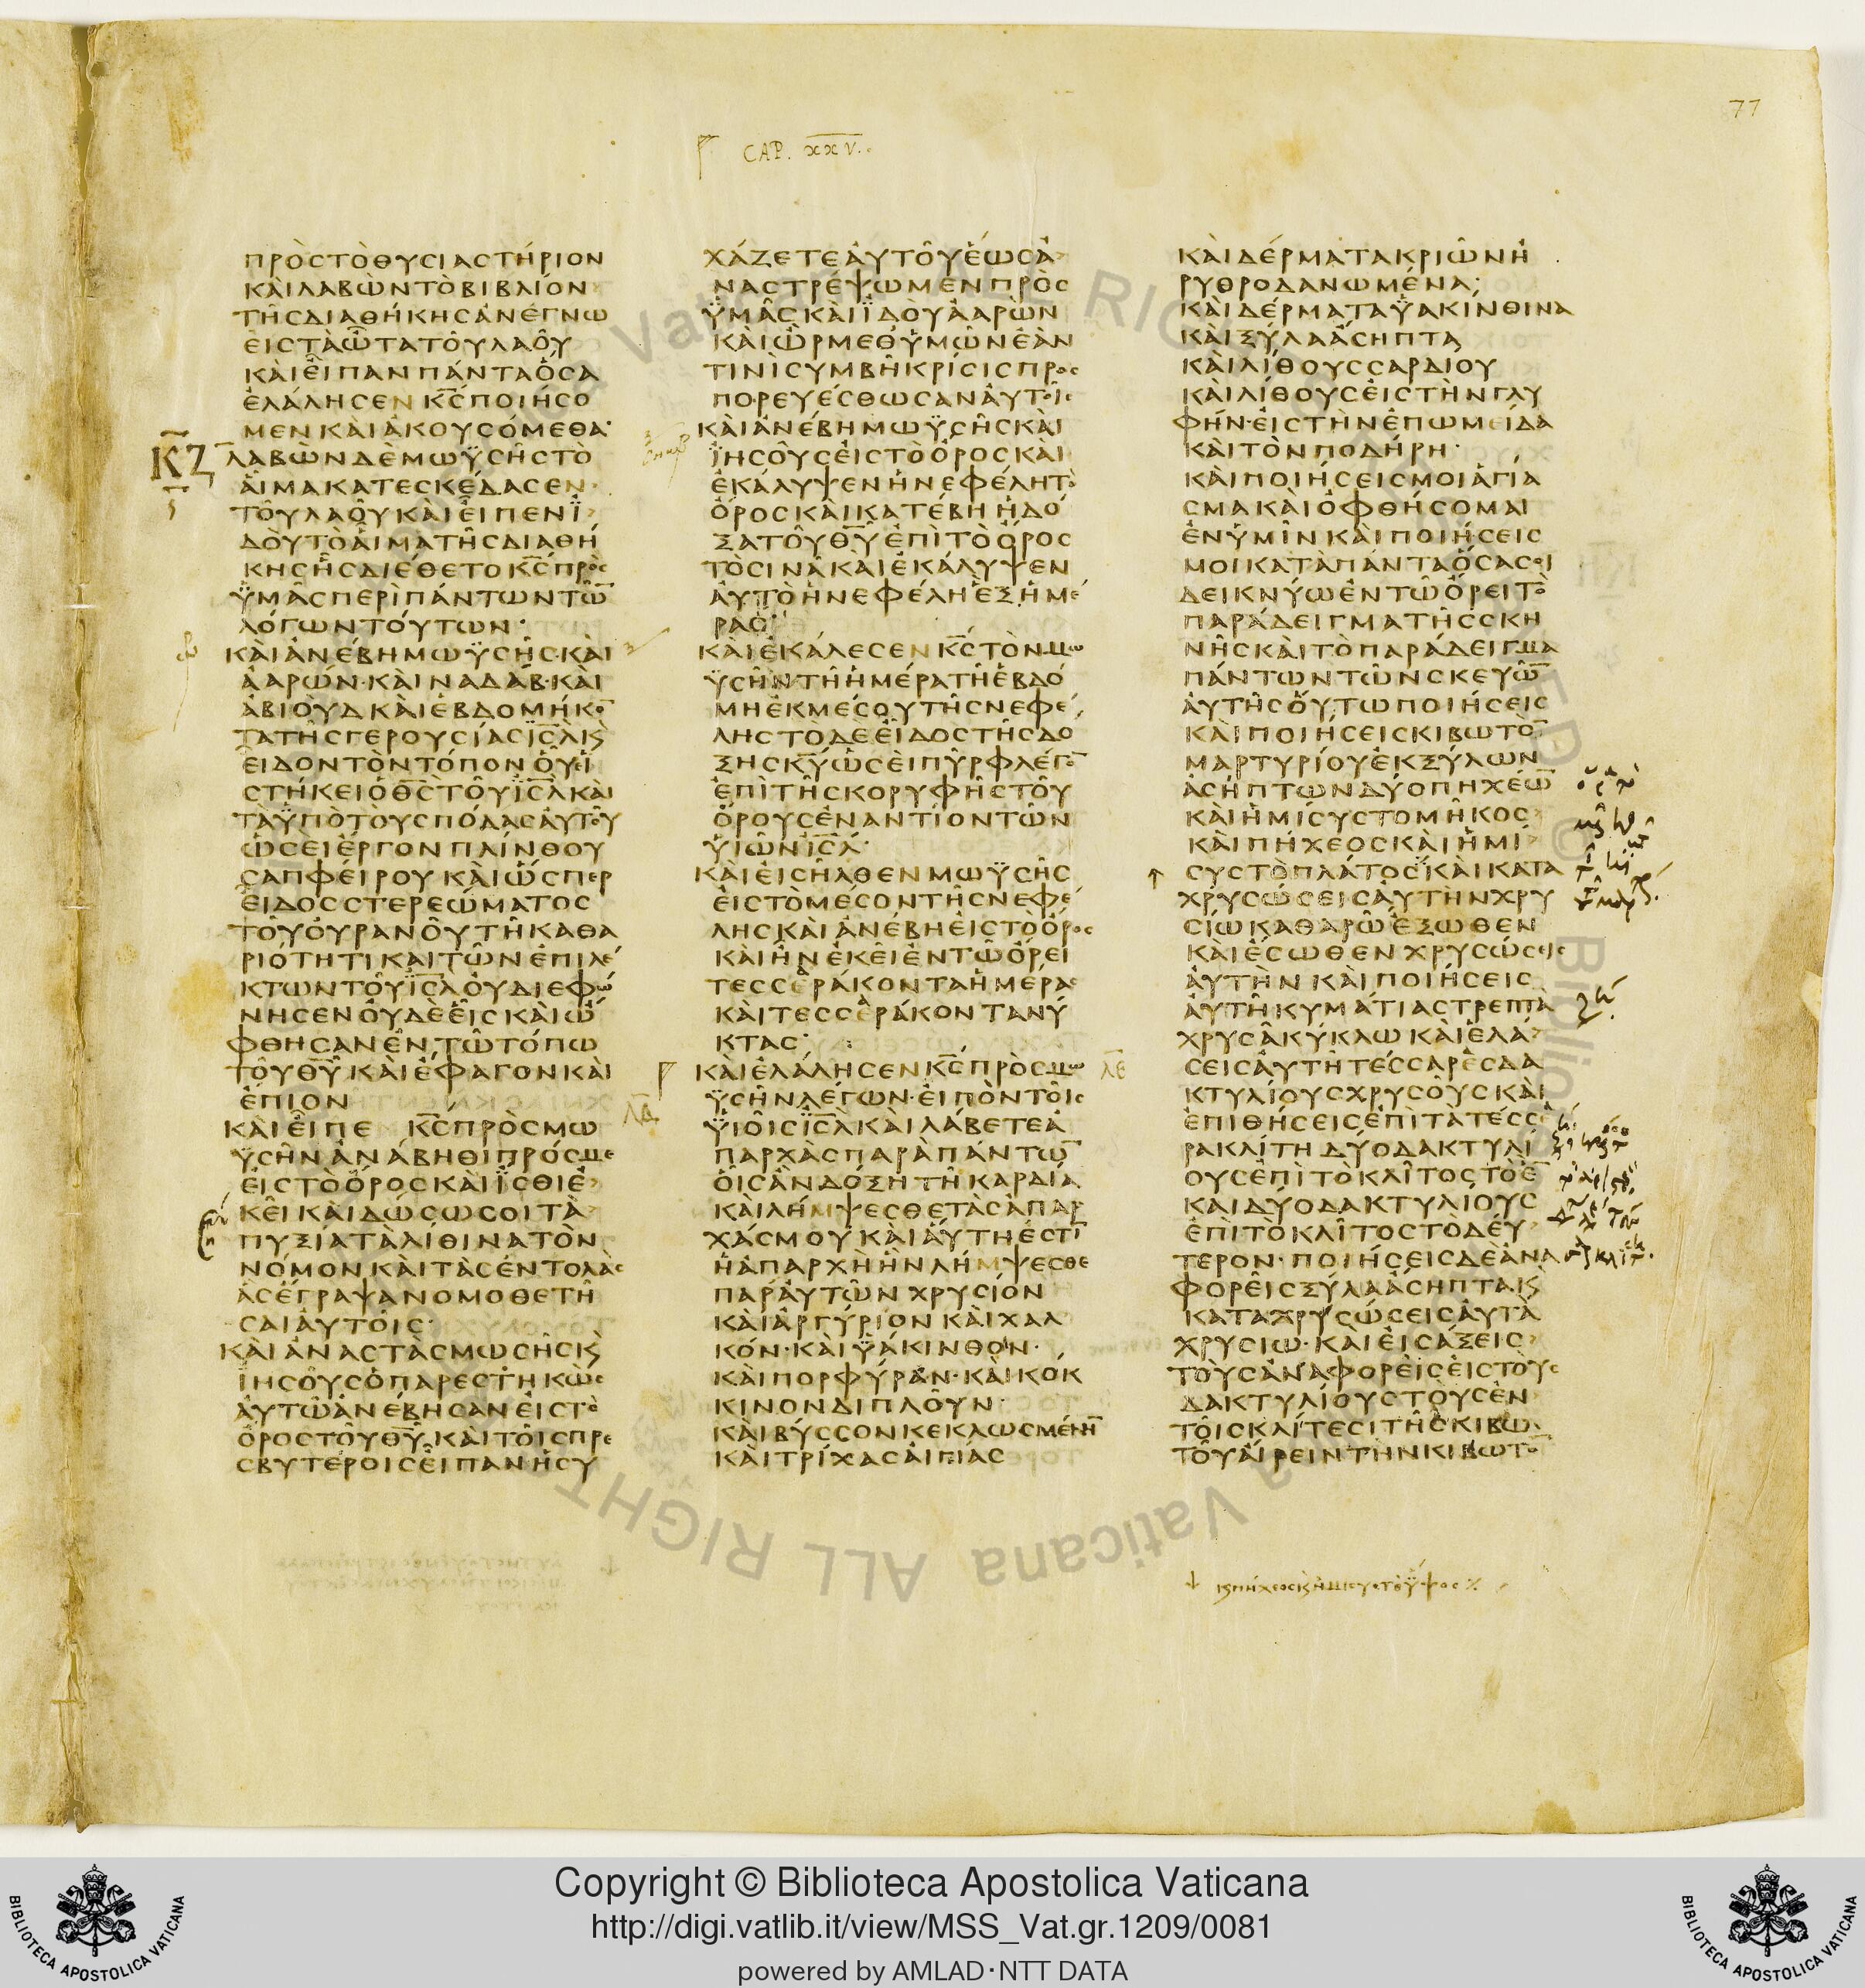 77
CAP. XXV.
ΠΡΟΣΤΟΘΥΣΙΑΣΤΗΡΙΟΝ
ΚΑΙΛΑΒΩΝΤΟΒΙΒΛΙΟΝ
ΤΗΣΔΙΑΘΗΚΗΣΑΝΕΓΝΩ
ΕΙΣΤΑΩΤΑΤΟΥΛΑΟΥ
ΚΑΙΕΙΠΑΝΠΑΝΤΑΟΣΑ
ΕΛΑΛΗΣΕΝΚΣΠΟΙΗΣΟ
ΜΕΝΚΑΙΑΚΟΥΣΟΜΕΘΑ
ΚΖ
ΛΑΒΩΝΔΕΜΩΫΣΗΣΤΟ
ΑΙΜΑΚΑΤΕΣΚΕΔΑΣΕΝ
ΤΟΥΛΑΟΥΚΑΙΕΙΠΕΝΪ
ΔΟΥΤΟΑΙΜΑΤΗΣΔΙΑΘΗ
ΚΗΣΗΣΔΙΕΘΕΤΟΚΣΠΡΟΣ
ΫΜΑΣΠΕΡΙΠΑΝΤΩΝΤΩ̅
ΛΟΓΩΝΤΟΥΤΩΝ
ΚΑΙΑΝΕΒΗΜΩΫΣΗΣ·ΚΑΙ
ΑΑΡΩΝ·ΚΑΙΝΑΔΑΒ·ΚΑΙ
ΑΒΙΟΥΔΚΑΙΕΒΔΟΜΗΚΟ̅
ΤΑΤΗΣΓΕΡΟΥΣΙΑΣΙΣΛΚΑΙ
ΕΙΔΟΝΤΟΝΤΟΠΟΝΟΥΕΙ
ΣΤΗΚΕΙΟΘΣΤΟΥΙΣΛΚΑΙ
ΤΑΫΠΟΤΟΥΣΠΟΔΑΣΑΥΤΟΥ
ΩΣΕΙΕΡΓΟΝΠΛΙΝΘΟΥ
ΣΑΠΦΕΙΡΟΥΚΑΙΩΣΠΕΡ
ΕΙΔΟΣΣΤΕΡΕΩΜΑΤΟΣ
ΤΟΥΟΥΡΑΝΟΥΤΗΚΑΘΑ
ΡΙΟΤΗΤΙΚΑΙΤΩΝΕΠΙΛΕ
ΚΤΩΝΤΟΥΙΣΛΟΥΔΙΕΦΩ
ΝΗΣΕΝΟΥΔΕΕΙΣΚΑΙΩ
ΦΘΗΣΑΝΕΝΤΩΤΟΠΩ
ΤΟΥΘΥΚΑΙΕΦΑΓΟΝΚΑΙ
ΕΠΙΟΝ
ΚΑΙΕΙΠΕ ΚΣΠΡΟΣΜΩ
ΫΣΗΝΑΝΑΒΗΘΙΠΡΟΣΜΕ
ΕΙΣΤΟΟΡΟΣΚΑΙΪΣΘΙΕ
ΚΕΙΚΑΙΔΩΣΩΣΟΙΤΑ
ΠΥΞΙΑΤΑΛΙΘΙΝΑΤΟΝ
ΝΟΜΟΝΚΑΙΤΑΣΕΝΤΟΛΑΣ
ΑΣΕΓΡΑΨΑΝΟΜΟΘΕΤΗ
ΣΑΙΑΥΤΟΙΣ
ΚΑΙΑΝΑΣΤΑΣΜΩΣΗΣΚΑΙ
ΪΗΣΟΥΣΟΠΑΡΕΣΤΗΚΩΣ
ΑΥΤΩΑΝΕΒΗΣΑΝΕΙΣΤΟ
ΟΡΟΣΤΟΥΘΥΚΑΙΤΟΙΣΠΡΕ
ΣΒΥΤΕΡΟΙΣΕΙΠΑΝΗΣΥ
ΧΑΖΕΤΕΑΥΤΟΥΕΩΣΑ
ΝΑΣΤΡΕΨΩΜΕΝΠΡΟΣ
ΫΜΑΣΚΑΙΪΔΟΥΑΑΡΩΝ
ΚΑΙΩΡΜΕΘΥΜΩΝΕΑΝ
ΤΙΝΙΣΥΜΒΗΚΡΙΣΙΣΠΡΟΣ
ΠΟΡΕΥΕΣΘΩΣΑΝΑΥΤΟΙΣ
ΚΑΙΑΝΕΒΗΜΩΫΣΗΣΚΑΙ
ΪΗΣΟΥΣΕΙΣΤΟΟΡΟΣΚΑΙ
ΕΚΑΛΥΨΕΝΗΝΕΦΕΛΗΤΟ
ΟΡΟΣΚΑΙΚΑΤΕΒΗΗΔΟ
ΞΑΤΟΥΘΥΕΠΙΤΟΟΡΟΣ
ΤΟΣΙΝΑΚΑΙΕΚΑΛΥΨΕΝ
ΑΥΤΟΗΝΕΦΕΛΗΕΞΗΜΕ
ΡΑΣ
ΚΑΙΕΚΑΛΕΣΕΝΚΣΤΟΝΜΩ
ΫΣΗΝΤΗΗΜΕΡΑΤΗΕΒΔΟ
ΜΗΕΚΜΕΣΟΥΤΗΣΝΕΦΕ
ΛΗΣΤΟΔΕΕΙΔΟΣΤΗΣΔΟ
ΞΗΣΚΥΩΣΕΙΠΥΡΦΛΕΓΟ̅
ΕΠΙΤΗΣΚΟΡΥΦΗΣΤΟΥ
ΟΡΟΥΣΕΝΑΝΤΙΟΝΤΩΝ
ΥΙΩΝΙΣΛ
ΚΑΙΕΙΣΗΛΘΕΝΜΩΫΣΗΣ
ΕΙΣΤΟΜΕΣΟΝΤΗΣΝΕΦΕ
ΛΗΣΚΑΙΑΝΕΒΗΕΙΣΤΟΟΡΟΣ
ΚΑΙΗΝΕΚΕΙΕΝΤΩΟΡΕΙ
ΤΕΣΣΕΡΑΚΟΝΤΑΗΜΕΡΑΣ
ΚΑΙΤΕΣΣΕΡΑΚΟΝΤΑΝΥ
ΚΤΑΣ
ΚΑΙΕΛΑΛΗΣΕΝΚΣΠΡΟΣΜΩ
ΫΣΗΝΛΕΓΩΝ·ΕΙΠΟΝΤΟΙΣ
ΫΙΟΙΣΙΣΛΚΑΙΛΑΒΕΤΕΑ
ΠΑΡΧΑΣΠΑΡΑΠΑΝΤΩ̅
ΟΙΣΑΝΔΟΞΗΤΗΚΑΡΔΙΑ
ΚΑΙΛΗΜΨΕΣΘΕΤΑΣΑΠΑΡ
ΧΑΣΜΟΥΚΑΙΑΥΤΗΕΣΤΙ̅
ΗΑΠΑΡΧΗΗΝΛΗΜΨΕΣΘΕ
ΠΑΡΑΥΤΩΝΧΡΥΣΙΟΝ
ΚΑΙΑΡΓΥΡΙΟΝΚΑΙΧΑΛ
ΚΟΝ·ΚΑΙΫΑΚΙΝΘΟΝ·
ΚΑΙΠΟΡΦΥΡΑΝ·ΚΑΙΚΟΚ
ΚΙΝΟΝΔΙΠΛΟΥΝ·
ΚΑΙΒΥΣΣΟΝΚΕΚΛΩΣΜΕΝΗ̅
ΚΑΙΤΡΙΧΑΣΑΙΓΙΑΣ
ΚΑΙΔΕΡΜΑΤΑΚΡΙΩΝΗ
ΡΥΘΡΟΔΑΝΩΜΕΝΑ
ΚΑΙΔΕΡΜΑΤΑΫΑΚΙΝΘΙΝΑ
ΚΑΙΞΥΛΑΑΣΗΠΤΑ
ΚΑΙΛΙΘΟΥΣΣΑΡΔΙΟΥ
ΚΑΙΛΙΘΟΥΣΕΙΣΤΗΝΓΛΥ
ΦΗΝ·ΕΙΣΤΗΝΕΠΩΜΕΙΔΑ
ΚΑΙΤΟΝΠΟΔΗΡΗ·
ΚΑΙΠΟΙΗΣΕΙΣΜΟΙΑΓΙΑ
ΣΜΑΚΑΙΟΦΘΗΣΟΜΑΙ
ΕΝΥΜΙΝΚΑΙΠΟΙΗΣΕΙΣ
ΜΟΙΚΑΤΑΠΑΝΤΑΟΣΑΣΟΙ
ΔΕΙΚΝΥΩΕΝΤΩΟΡΕΙΤΟ
ΠΑΡΑΔΕΙΓΜΑΤΗΣΣΚΗ
ΝΗΣΚΑΙΤΟΠΑΡΑΔΕΙΓΜΑ
ΠΑΝΤΩΝΤΩΝΣΚΕΥΩ̅
ΑΥΤΗΣΟΥΤΩΠΟΙΗΣΕΙΣ
ΚΑΙΠΟΙΗΣΕΙΣΚΙΒΩΤΟ̅
ΜΑΡΤΥΡΙΟΥΕΚΞΥΛΩΝ
ΑΣΗΠΤΩΝΔΥΟΠΗΧΕΩ̅
ΚΑΙΗΜΙΣΥΣΤΟΜΗΚΟΣ
ΚΑΙΠΗΧΕΟΣΚΑΙΗΜΙ
ΣΥΣΤΟΠΛΑΤΟΣΚΑΙΚΑΤΑ
ΧΡΥΣΩΣΕΙΣΑΥΤΗΝΧΡΥ
ΣΙΩΚΑΘΑΡΩΕΞΩΘΕΝ
ΚΑΙΕΣΩΘΕΝΧΡΥΣΩΣΕΙΣ
ΑΥΤΗΝΚΑΙΠΟΙΗΣΕΙΣ
ΑΥΤΗΚΥΜΑΤΙΑΣΤΡΕΠΤΑ
ΧΡΥΣΑΚΥΚΛΩΚΑΙΕΛΑ
ΣΕΙΣΑΥΤΗΤΕΣΣΑΡΕΣΔΑ
ΚΤΥΛΙΟΥΣΧΡΥΣΟΥΣΚΑΙ
ΕΠΙΘΗΣΕΙΣΕΠΙΤΑΤΕΣΣΕ
ΡΑΚΛΙΤΗΔΥΟΔΑΚΤΥΛΙ
ΟΥΣΕΠΙΤΟΚΛΙΤΟΣΤΟΕ̅
ΚΑΙΔΥΟΔΑΚΤΥΛΙΟΥΣ
ΕΠΙΤΟΚΛΙΤΟΣΤΟΔΕΥ
ΤΕΡΟΝ·ΠΟΙΗΣΕΙΣΔΕΑΝΑ
ΦΟΡΕΙΣΞΥΛΑΑΣΗΠΤΑΚΑΙ
ΚΑΤΑΧΡΥΣΩΣΕΙΣΑΥΤΑ
ΧΡΥΣΙΩ·ΚΑΙΕΙΣΑΞΕΙΣ
ΤΟΥΣΑΝΑΦΟΡΕΙΣΕΙΣΤΟΥΣ
ΔΑΚΤΥΛΙΟΥΣΤΟΥΣΕΝ
ΤΟΙΣΚΛΙΤΕΣΙΤΗΣΚΙΒΩ
ΤΟΥΑΙΡΕΙΝΤΗΝΚΙΒΩΤΟ̅
Copyright © Biblioteca Apostolica Vaticana
http://digi.vatlib.it/view/MSS_Vat.gr.1209/0081
powered by AMLAD·NTT DATA
BIBLIOTECA APOSTOLICA VATICANA
BIBLIOTECA APOSTOLICA VATICANA